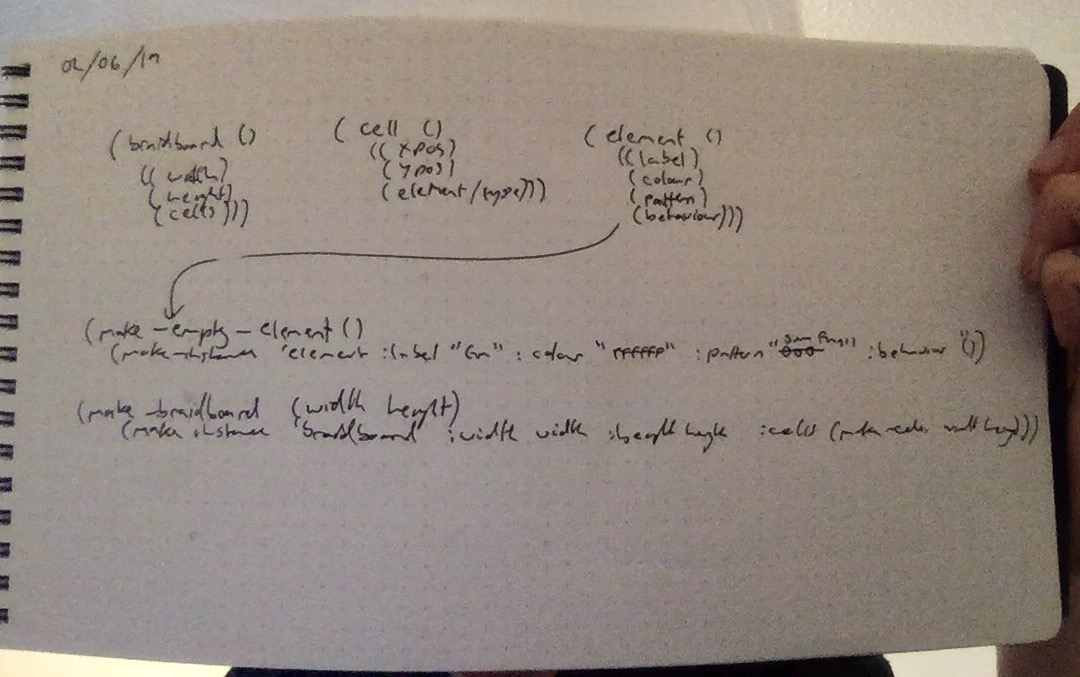 02/06/19
(braidboard ()
((width)
(height)
(cells)))
(cell ()
((xpos)
(ypos)
(element/type)))
(element ()
((label)
(colour)
(pattern)
(behaviour)))
(make-empty-element ()
(make-instance 'element :label "Em" :colour "FFFFFF" :pattern :behaviour "())
(make-braidboard (width height)
(make-instance 'braidboard :width width :height height :cells (make-cells width height)))